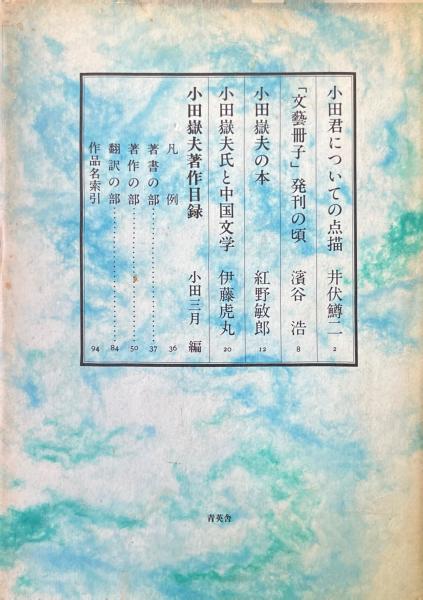 小田君についての点描 井伏鱒二 2
「文藝冊子」発刊の頃 濱谷 浩 8
小田嶽夫の本 紅野敏郎 12
小田嶽夫氏と中国文学 伊藤虎丸 20
小田嶽夫著作目録 小田三月 編
凡例 36
著書の部 37
著作の部 50
翻訳の部 84
作品名索引 94
青英舎